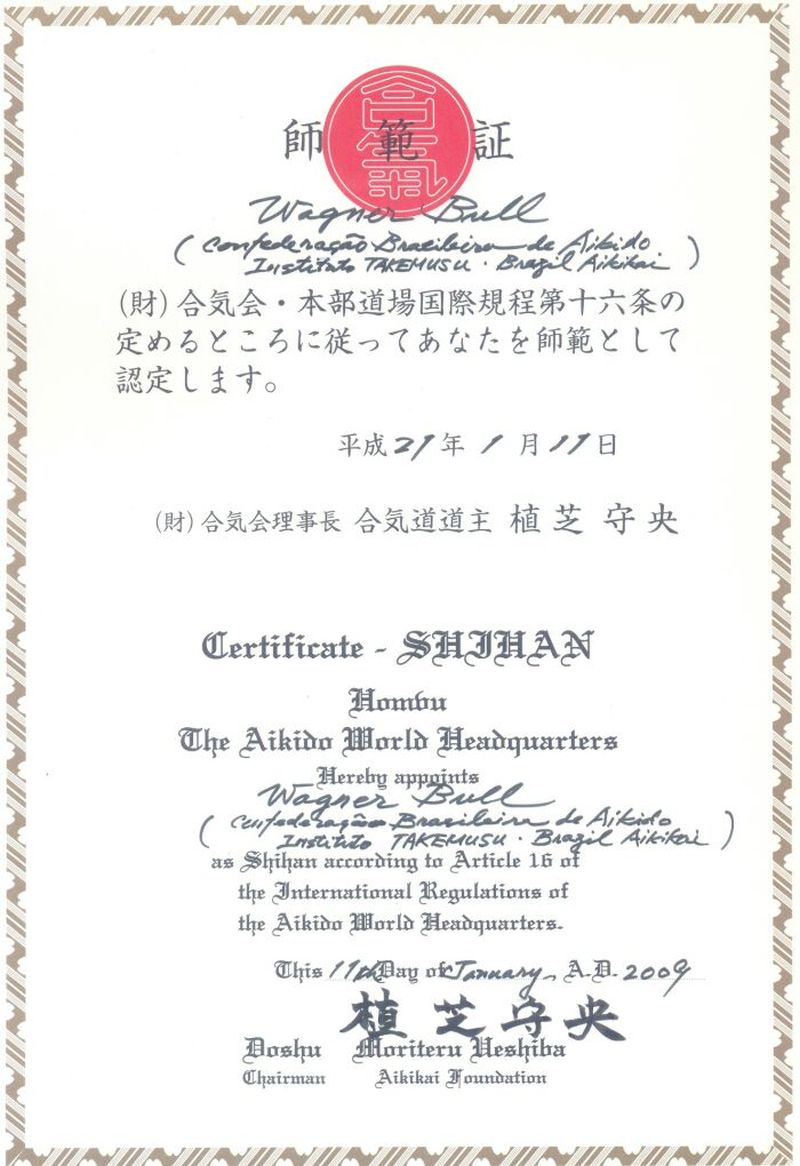 師範証
合氣
Wagner Bull
(Confederação Brasileira de Aikido
Instituto TAKEMUSU · Brazil Aikikai)
(財)合気会・本部道場国際規程第十六条の
定めるところに従ってあなたを師範として
認定します。
平成21年1月11日
(財)合気会理事長 合気道道主 植芝守央
Certificate - SHIHAN
Hombu
The Aikido World Headquarters
Hereby appoints
Wagner Bull
(Confederação Brasileira de Aikido
Instituto TAKEMUSU · Brazil Aikikai)
as Shihan according to Article 16 of
the International Regulations of
the Aikido World Headquarters.
This 11th Day of January, A.D. 2009
植芝守央
Doshu Moriteru Ueshiba
Chairman Aikikai Foundation